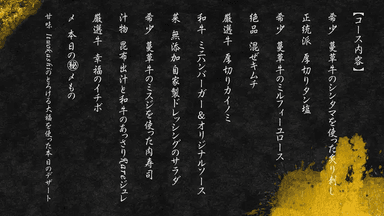 【コース内容】
希少 蔓草牛のシンタマを使った炙り刺し
正統派 厚切りタン塩
希少 蔓草牛のミルフィーユロース
絶品 混ぜキムチ
厳選牛 厚切りカイノミ
和牛 ミニハンバーガー&オリジナルソース
菜 無添加自家製ドレッシングのサラダ
希少 蔓草牛のミスジを使った肉寿司
汁物 昆布出汁と和牛のあっさりRareジュレ
厳選牛 幸福のイチボ
〆 本日の㊙〆もの
甘味 のとろける大福を使った本日のデザート